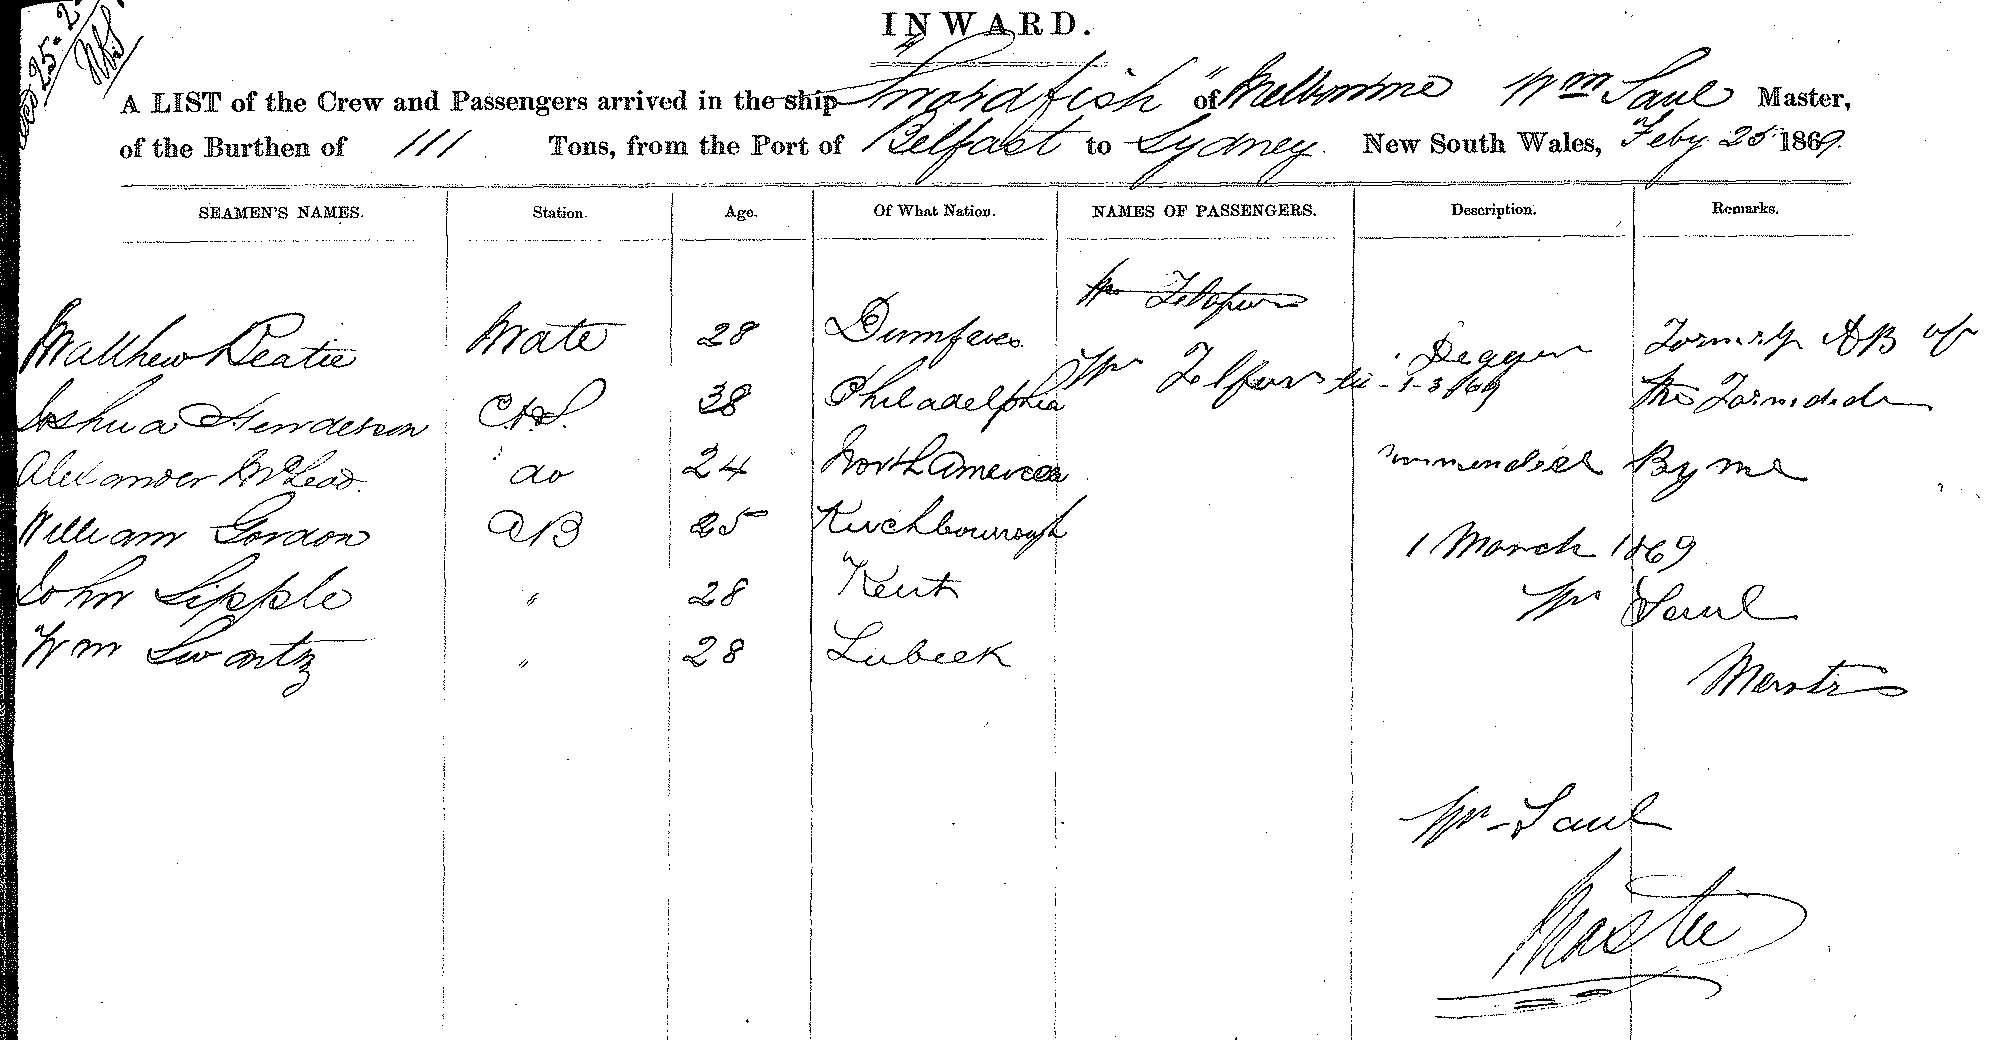 INWARD.
A LIST of the Crew and Passengers arrived in the ship "Swordfish" of Melbourne Wm Saul Master,
of the Burthen of 111 Tons, from the Port of Belfast to Sydney New South Wales, Feby 25 1869.
SEAMEN'S NAMES. Station. Age. Of What Nation. NAMES OF PASSENGERS. Description. Remarks.
Matthew Beatie Mate 28 Dumfries
Joshua Henderson 38 Philadelphia
Alexander McLeod do 24 North America
William Gordon AB 25
John Sipple " 28 Kent
Wm Swartz " 28 Lubeck
Wm Telfur
Wm Telfur 1-3/69 AB of
the
By me
1 March 1869
Wm Saul
Wm Saul
Master